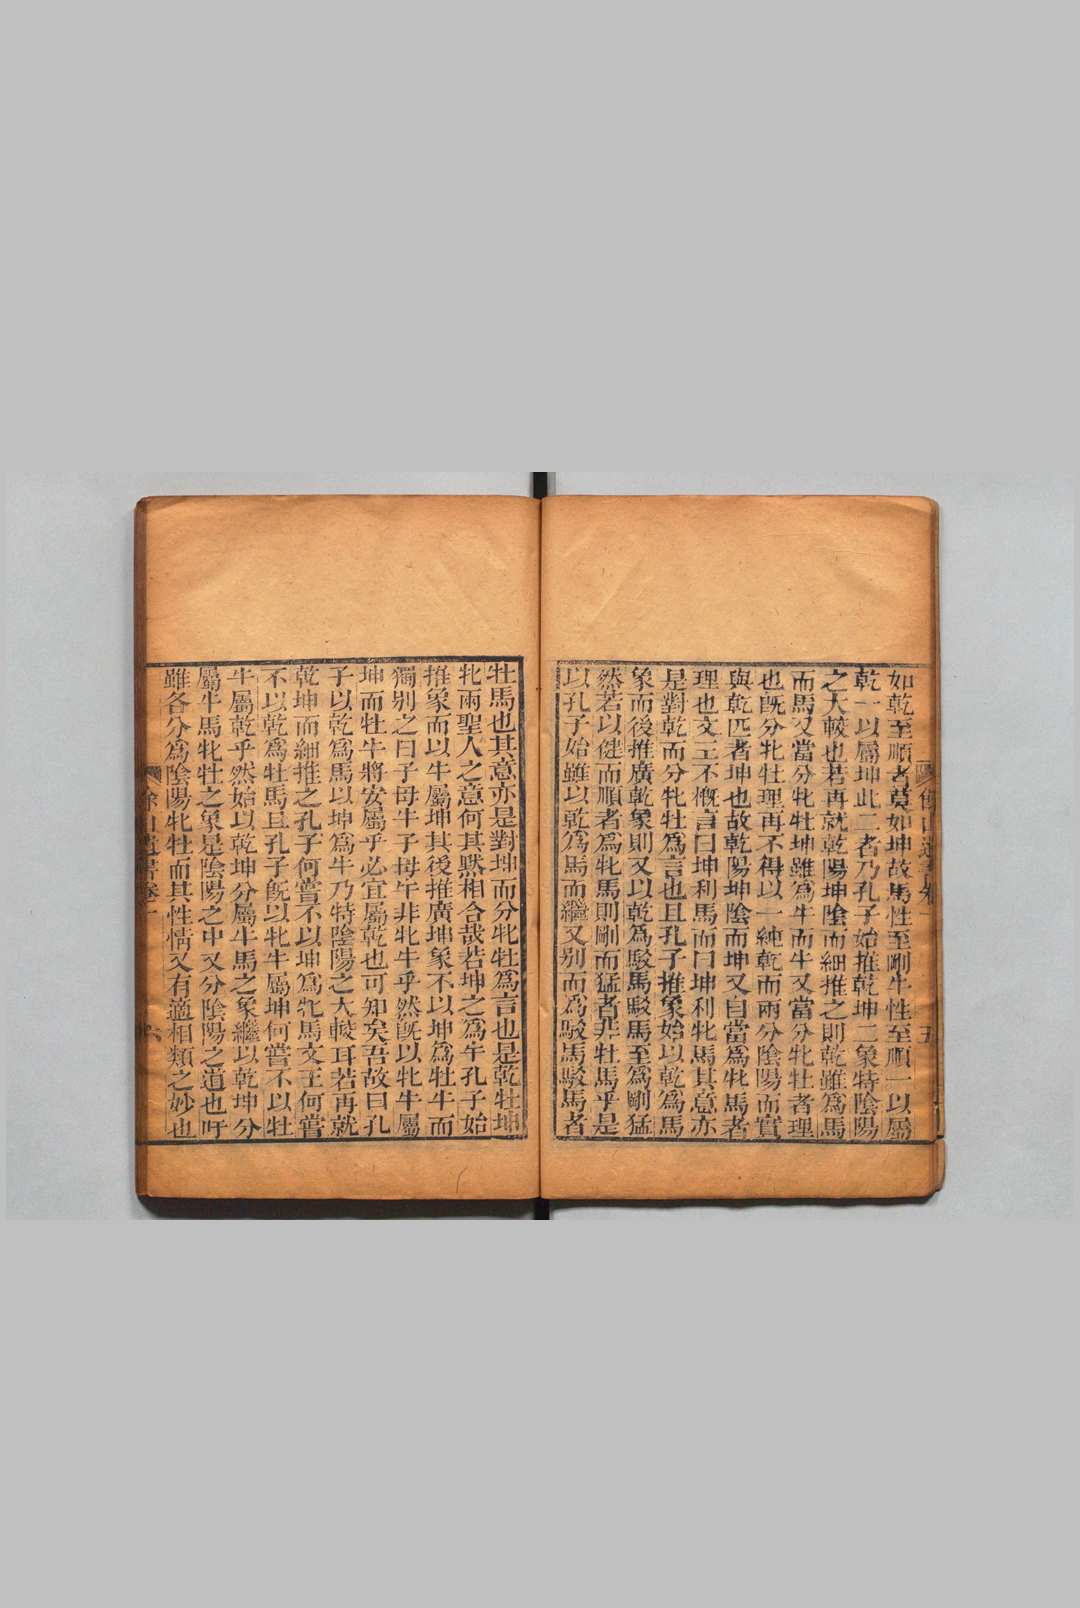 如乾至順者莫如坤故馬性至剛牛性至順一以屬
乾一以屬坤此二者乃孔子始推乾坤二象特陰陽
之大較也若再就乾陽坤陰而細推之則乾雖爲馬
而馬又當分牝牡坤雖爲牛而牛又當分牝牡者理
也旣分牝牡理再不得以一純乾而兩分陰陽而實
與乾匹者坤也故乾陽坤陰而坤又自當爲牝馬者
理也文王不慨言曰坤利馬而曰坤利牝馬其意亦
是對乾而分牝牡爲言也且孔子推象始以乾爲馬
象而後推廣乾象則又以乾爲駁馬駁馬至爲剛猛
然若以健而順者爲牝馬則剛而猛者非牡馬乎是
以孔子始雖以乾爲馬而繼又别而爲駁馬駁馬者
牡馬也其意亦是對坤而分牝牡爲言也是乾牡坤
牝兩聖人之意何其黙相合哉若坤之爲牛孔子始
推象而以牛屬坤其後推廣坤象不以坤爲牡牛而
獨别之曰子母牛子母牛非牝牛乎然旣以牝牛屬
坤而牡牛將安屬乎必宜屬乾也可知矣吾故曰孔
子以乾爲馬以坤爲牛乃特陰陽之大較耳若再就
乾坤而細推之孔子何嘗不以坤爲牝馬文王何嘗
不以乾爲牡馬且孔子旣以牝牛屬坤何嘗不以牡
牛屬乾乎然始以乾坤分屬牛馬之象繼以乾坤分
屬牛馬牝牡之象是陰陽之中又分陰陽之道也吁
雖各分爲陰陽牝牡而其性情又有適相類之妙也